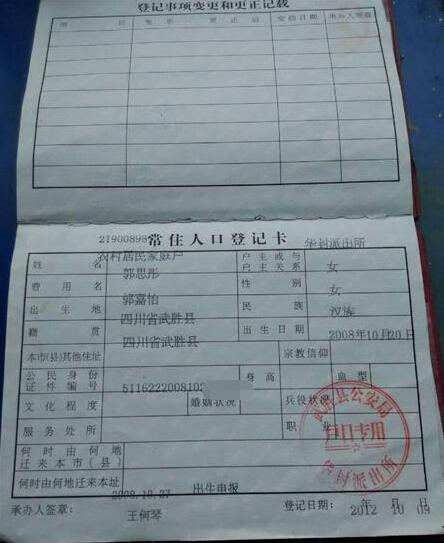 登记事项变更和更正记载
项 目 变更、更正后 变动日期 承办人签章
21900898 常住人口登记卡 华封派出所
农村居民家庭户
姓名 郭思彤 户主或与户主关系 女
曾用名 郭嘉怡 性别 女
出生地 四川省武胜县 民族 汉族
籍贯 四川省武胜县 出生日期 2008年10月20日
本市(县)其他住址 宗教信仰
公民身份证件编号 5116222008102 身高 血型
文化程度 婚姻状况 兵役状况
服务处所 职业
何时由何地迁来本市(县)
何时由何地迁来本址 2008.10.27 出生申报
承办人签章: 王何琴 登记日期: 2012年10月09日
武胜县公安局
户口专用
华封派出所